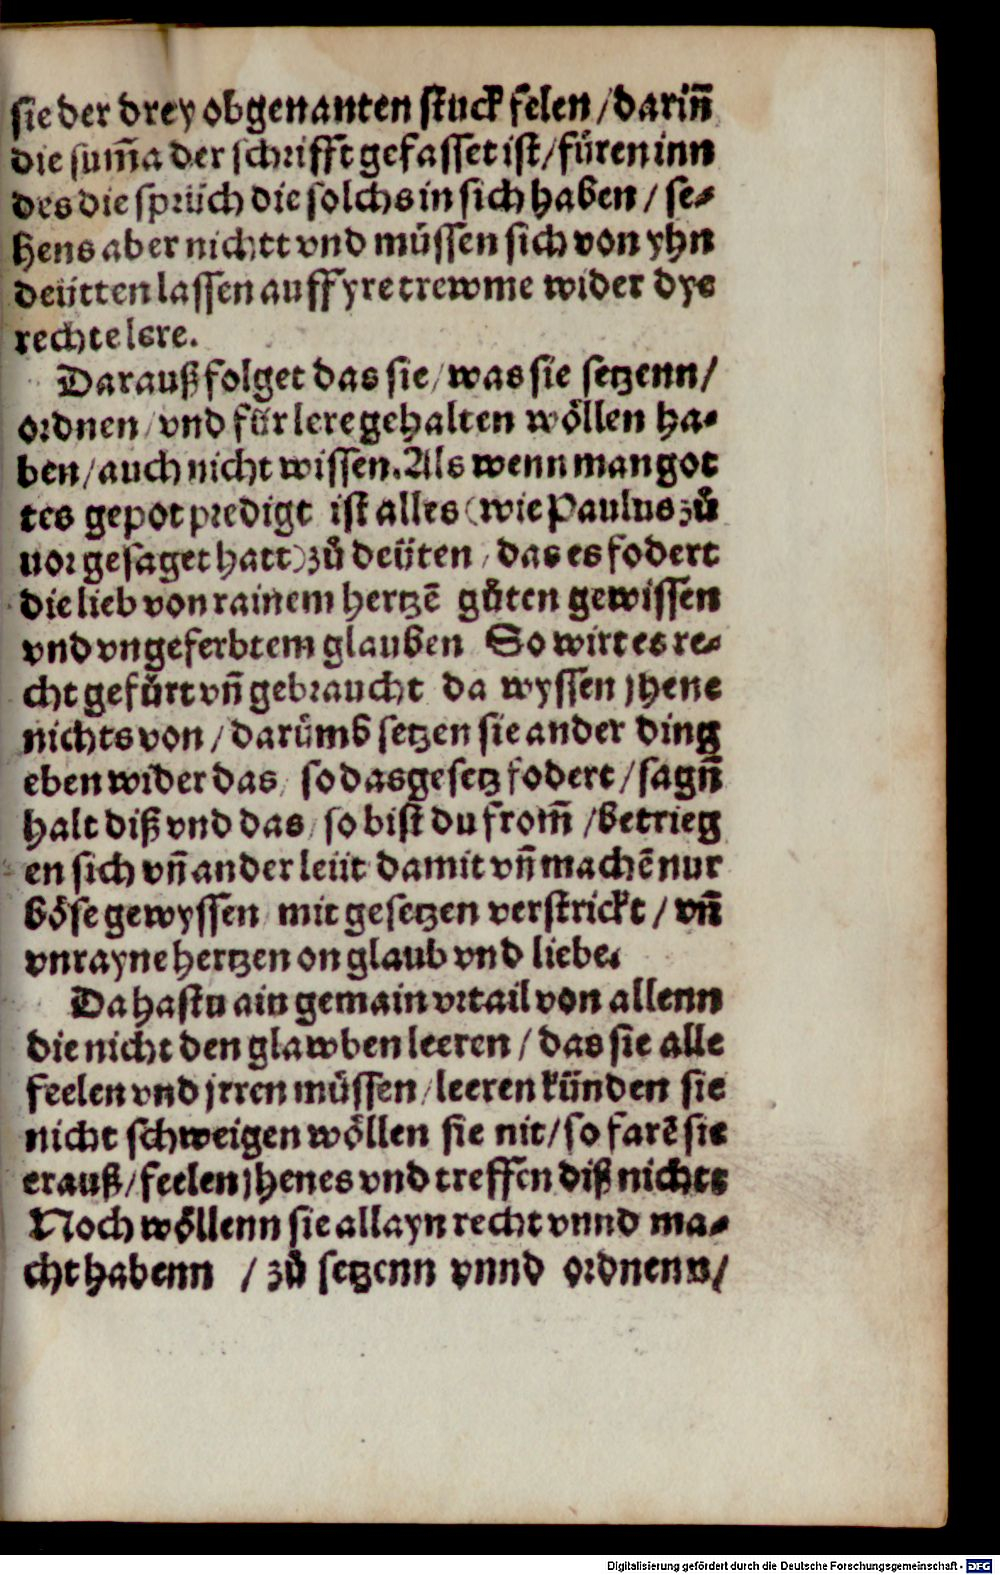 sie der drey obgenanten stuck felen / dariñ
die sum̃a der schrifft gefasset ist / füren inn
des die sprüch die solchs in sich haben / se-
hens aber nichtt vnd müssen sich von yhn
deütten lassen auff yre trewme wider dye
rechte lere.
Darauß folget das sie / was sie setzenn /
ordnen / vnd für lere gehalten wöllen ha-
ben / auch nicht wissen. Als wenn man got
tes gepot predigt ist alles (wie Paulus zů
uor gesaget hatt) zů deüten / das es fodert
die lieb von rainem hertzē gůten gewissen
vnd vngeferbtem glauben So wirt es re-
cht gefůrt vñ gebraucht da wyssen jhene
nichts von / darümb setzen sie ander ding
eben wider das / so das gesetz fodert / sagñ
halt diß vnd das / so bist du from̃ / betrieg
en sich vñ ander leüt damit vñ machē nur
böse gewyssen mit gesetzen verstrickt / vñ
vnrayne hertzen on glaub vnd liebe.
Da hastu ain gemain vrtail von allenn
die nicht den glawben leeren / das sie alle
feelen vnd jrren müssen / leeren künden sie
nicht schweigen wöllen sie nit / so farē sie
erauß / feelen jhenes vnd treffen diß nichts
Noch wöllenn sie allayn recht vnnd ma-
cht habenn / zů setzenn vnnd ordnenn /
Digitalisierung gefördert durch die Deutsche Forschungsgemeinschaft - DFG